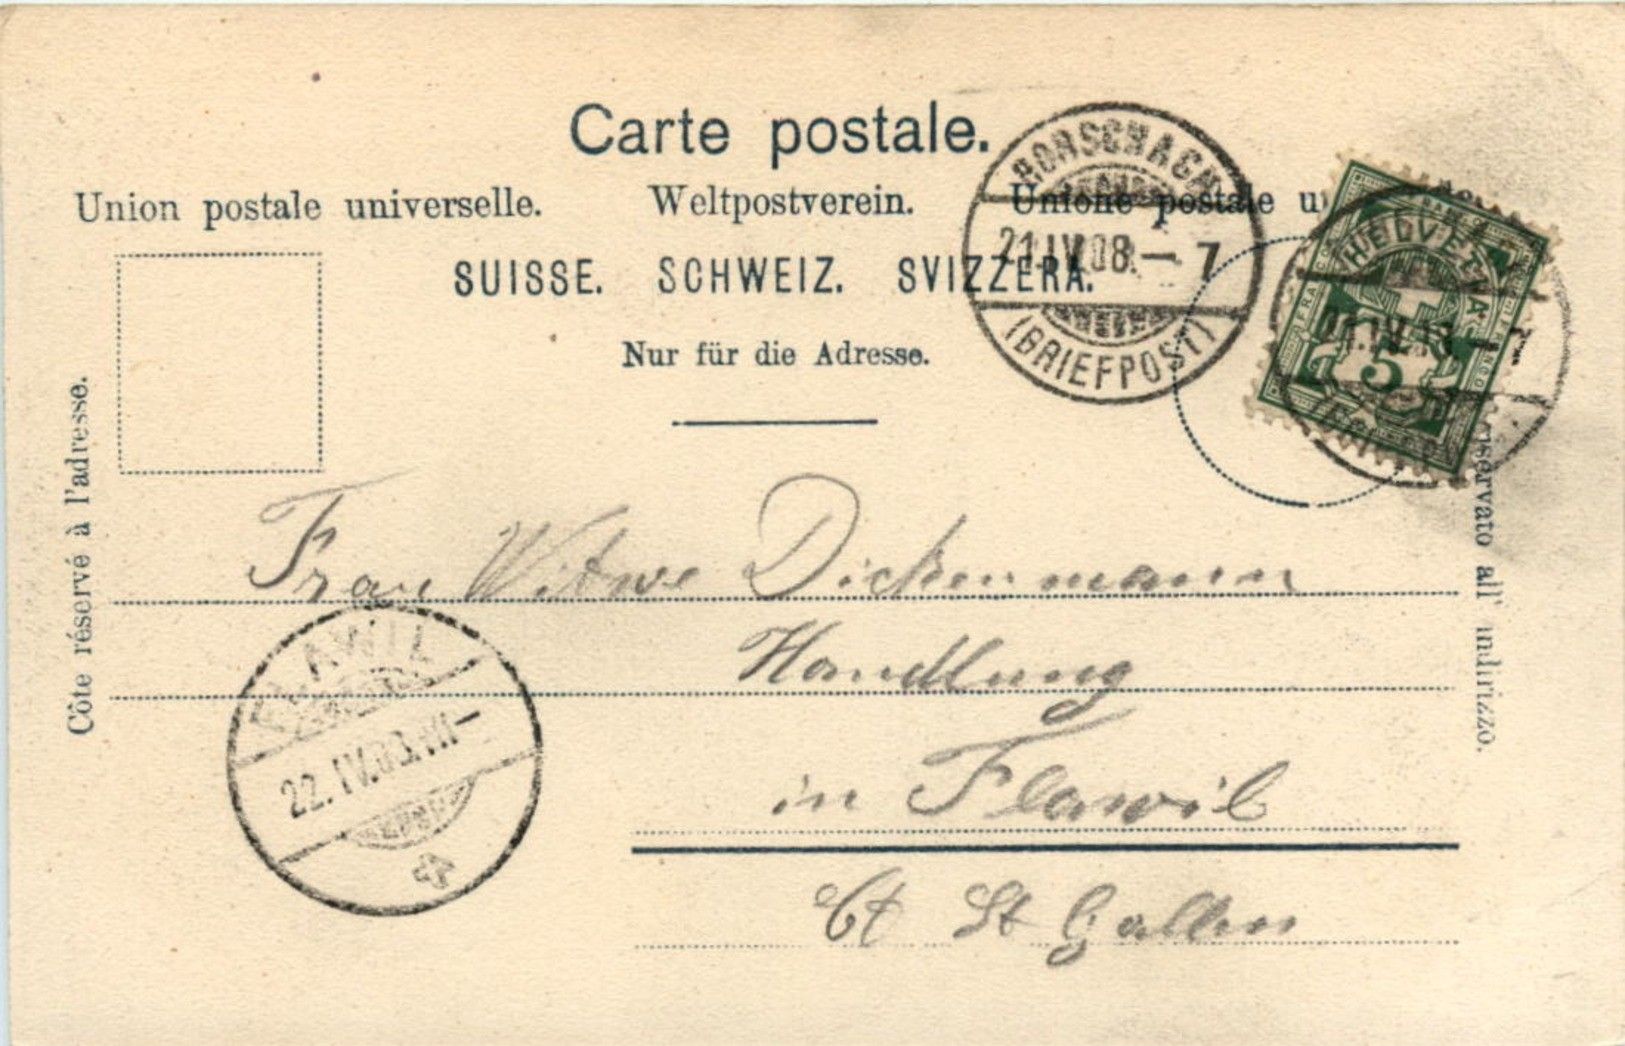 Carte postale.
Union postale universelle. Weltpostverein. Unione postale u
SUISSE. SCHWEIZ. SVIZZERA.
Nur für die Adresse.
Côte réservé à l'adresse.
RORSCHACH
21.IV.08.—7
(BRIEFPOST)
HELVETIA
FRANCO
5
servato all' indirizzo.
Frau Witwe Dickenmann
Handlung
in Flawil
Ct St Gallen
FLAWIL
22.IV.